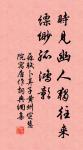 時見幽人獨往來
縹緲孤鴻影
蘇軾卜算子黃州定慧
院寓居作詞典網集